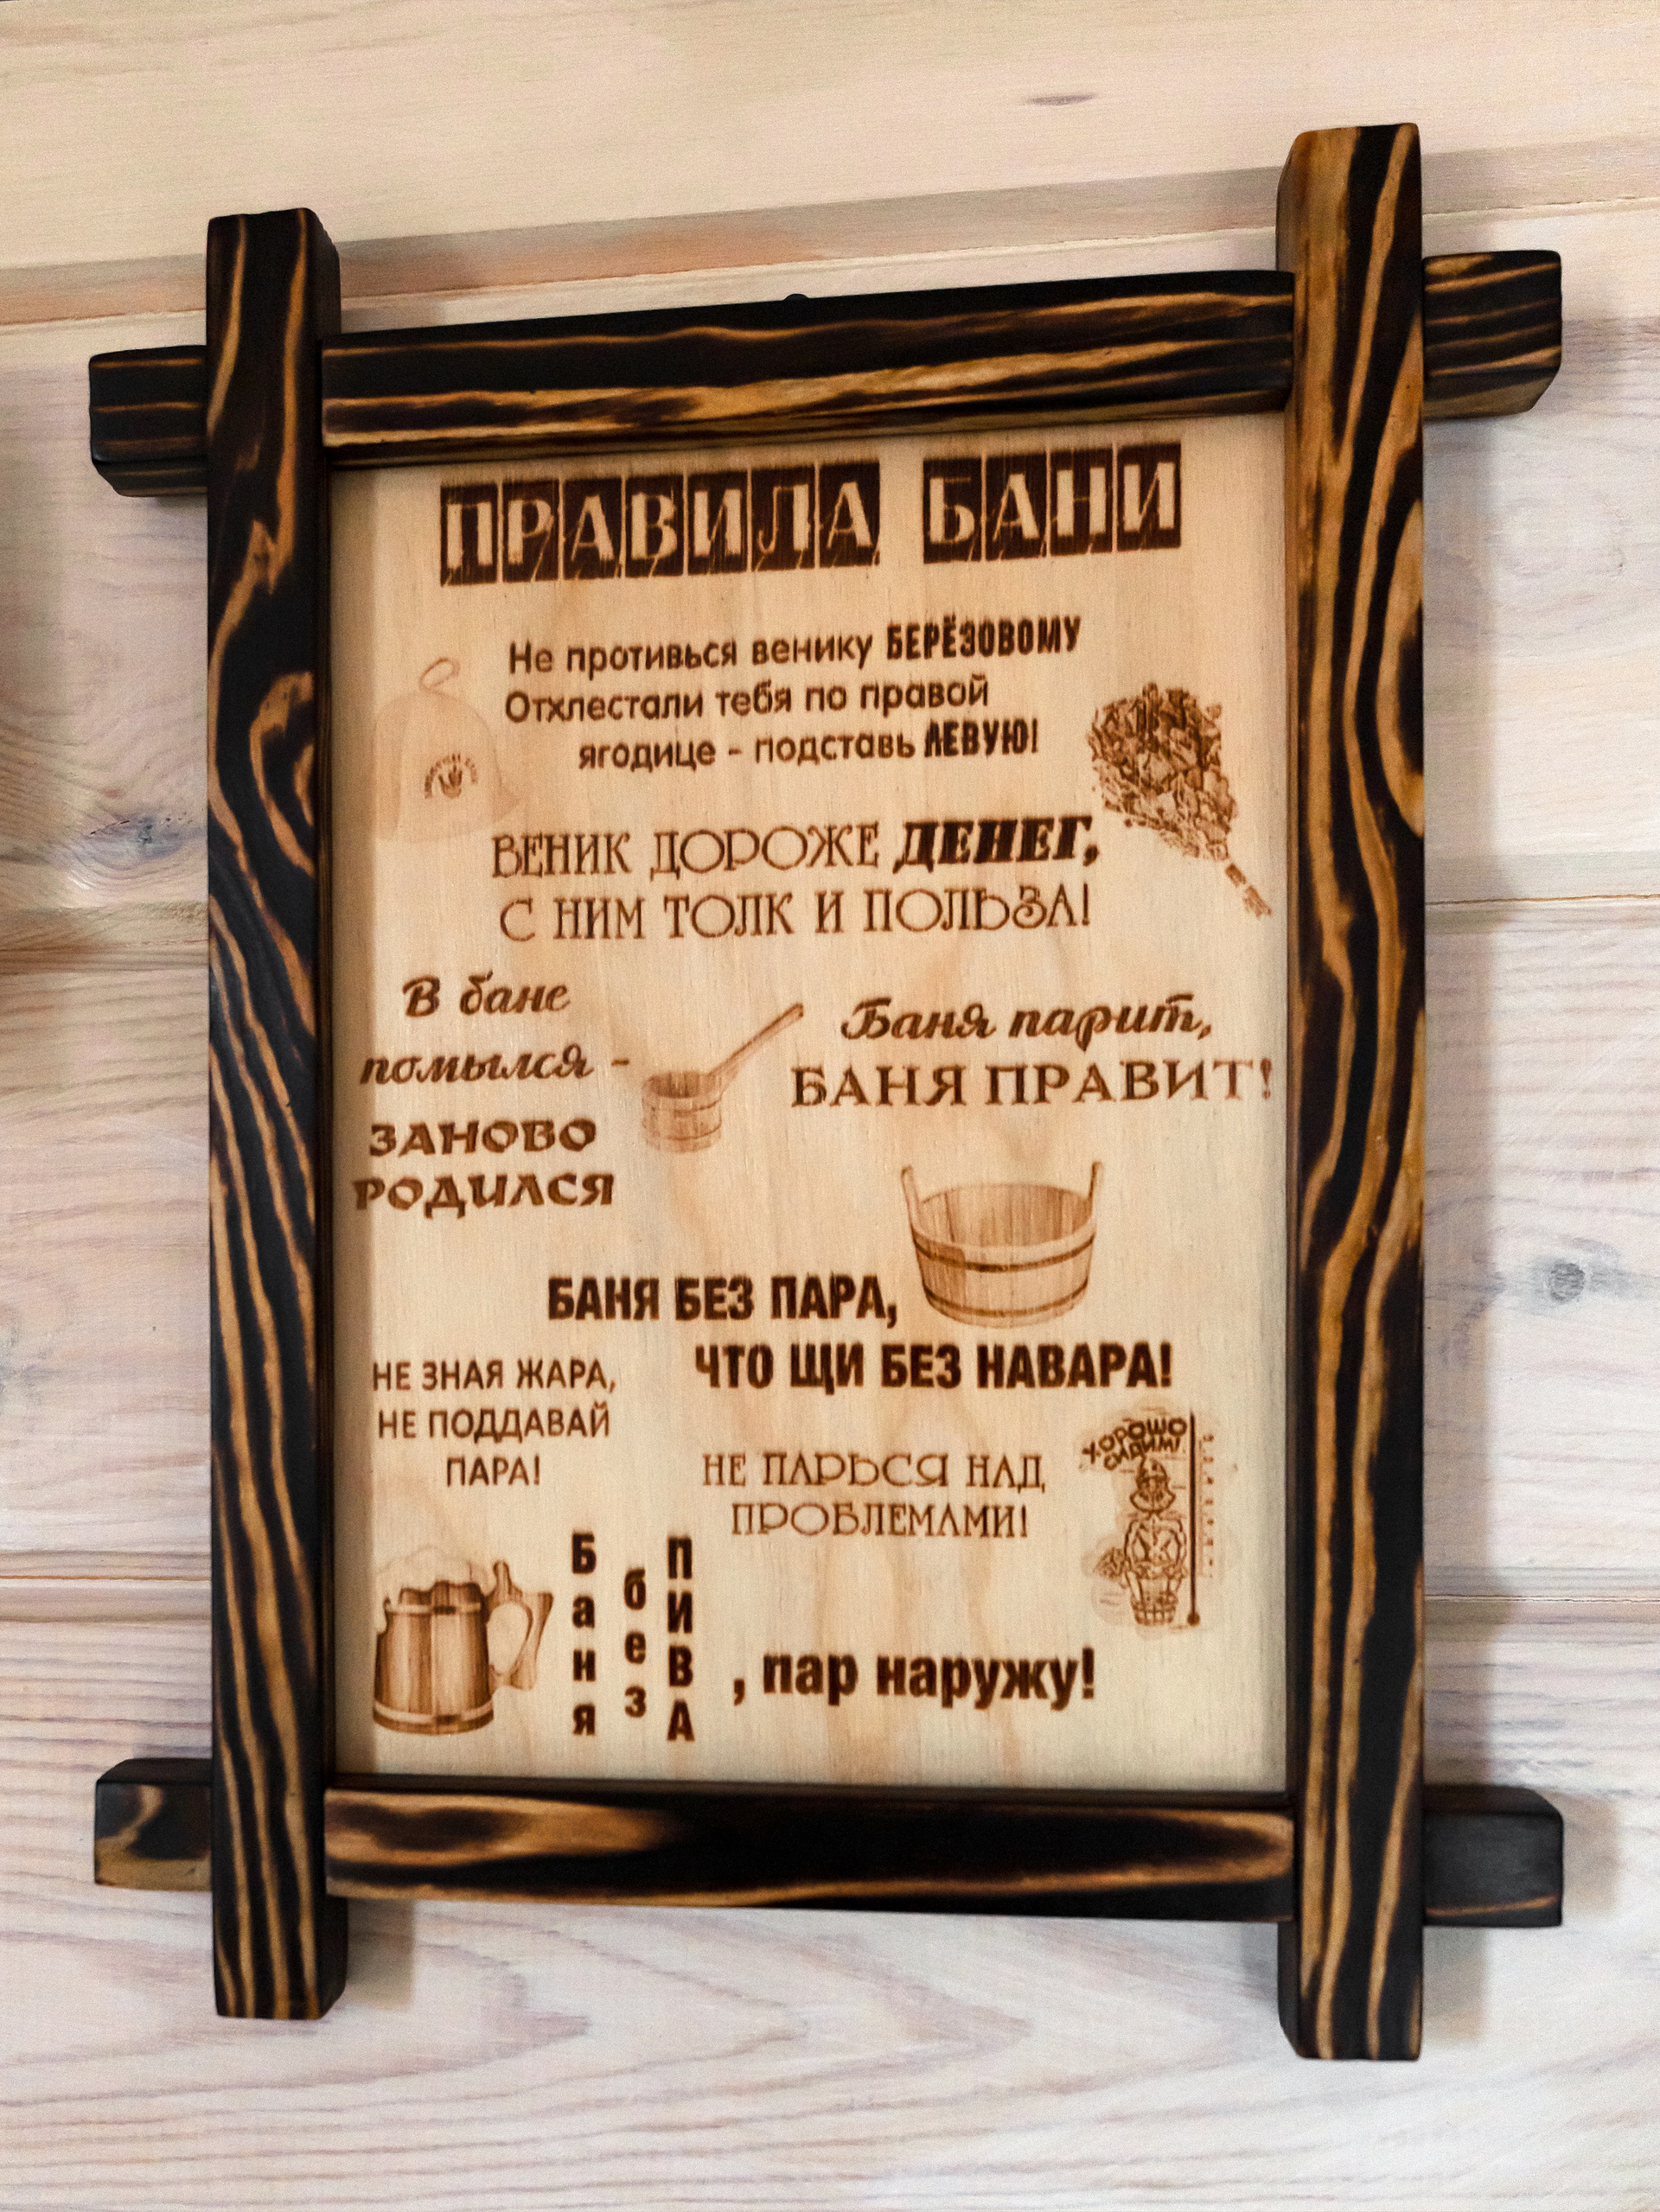 ПРАВИЛА БАНИ
Не противься венику БЕРЁЗОВОМУ
Отхлестали тебя по правой
ягодице - подставь ЛЕВУЮ!
ВЕНИК ДОРОЖЕ ДЕНЕГ,
С НИМ ТОЛК И ПОЛЬЗА!
В бане
помылся -
ЗАНОВО
РОДИЛСЯ
Баня парит,
БАНЯ ПРАВИТ!
БАНЯ БЕЗ ПАРА,
ЧТО ЩИ БЕЗ НАВАРА!
НЕ ЗНАЯ ЖАРА,
НЕ ПОДДАВАЙ
ПАРА!
НЕ ПАРЬСЯ НАД
ПРОБЛЕМАМИ!
ХОРОШО
СИДИМ!
Баня
без
ПИВА
, пар наружу!